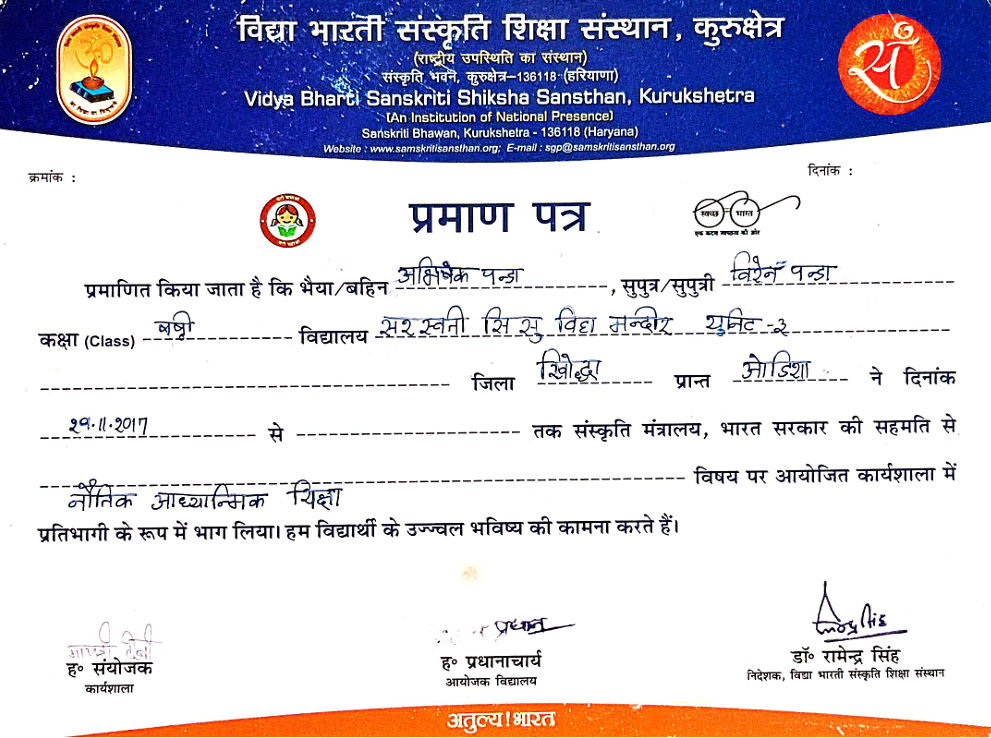 विद्या भारती संस्कृति शिक्षा संस्थान, कुरुक्षेत्र
(राष्ट्रीय उपस्थिति का संस्थान)
संस्कृति भवन, कुरुक्षेत्र–136118 (हरियाणा)
Vidya Bharti Sanskriti Shiksha Sansthan, Kurukshetra
(An Institution of National Presence)
Sanskriti Bhawan, Kurukshetra - 136118 (Haryana)
Website : www.samskritisansthan.org; E-mail : sgp@samskritisansthan.org
सं
क्रमांक :
दिनांक :
प्रमाण पत्र
स्वच्छ भारत
एक कदम स्वच्छता की ओर
प्रमाणित किया जाता है कि भैया/बहिन अभिषेक पन्डा, सुपुत्र/सुपुत्री विरेन पन्डा
कक्षा (Class) षष्ठी विद्यालय सरस्वती सिसु विद्या मन्दीर युनिट-३
जिला खोर्द्धा प्रान्त ओडिशा ने दिनांक
29.11.2017 से तक संस्कृति मंत्रालय, भारत सरकार की सहमति से
विषय पर आयोजित कार्यशाला में
नौतिक आध्यात्मिक शिक्षा
प्रतिभागी के रूप में भाग लिया। हम विद्यार्थी के उज्ज्वल भविष्य की कामना करते हैं।
प्रधान
ह० संयोजक
कार्यशाला
ह० प्रधानाचार्य
आयोजक विद्यालय
डॉ० रामेन्द्र सिंह
निदेशक, विद्या भारती संस्कृति शिक्षा संस्थान
अतुल्य!भारत